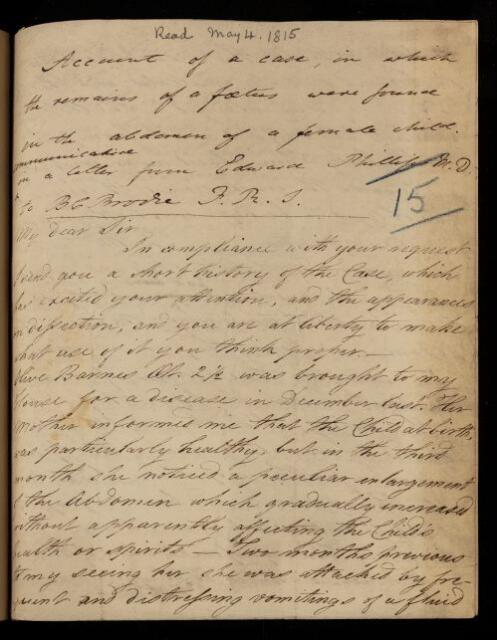 Read May 4. 1815
Account of a case, in which
the remains of a fœtus were found
in the abdomen of a female child.
communicative
in a letter from Edward Phillips M.D.
to B C Brodie F. R. S.
15
My dear Sir
In compliance with your request
I send you a short history of the Case, which
has excited your attention, and the appearances
on dissection, and you are at liberty to make
what use of it you think proper. —
Olive Barnes Æt. 2½ was brought to my
House for a disease in December last. Her
Mother informed me that the Child at birth,
was particularly healthy, but in the third
month she noticed a peculiar enlargement
of the Abdomen which gradually increased
without apparently affecting the Child's
health or spirits — Two months previous
to my seeing her she was attacked by fre-
quent and distressing vomitings of a fluid